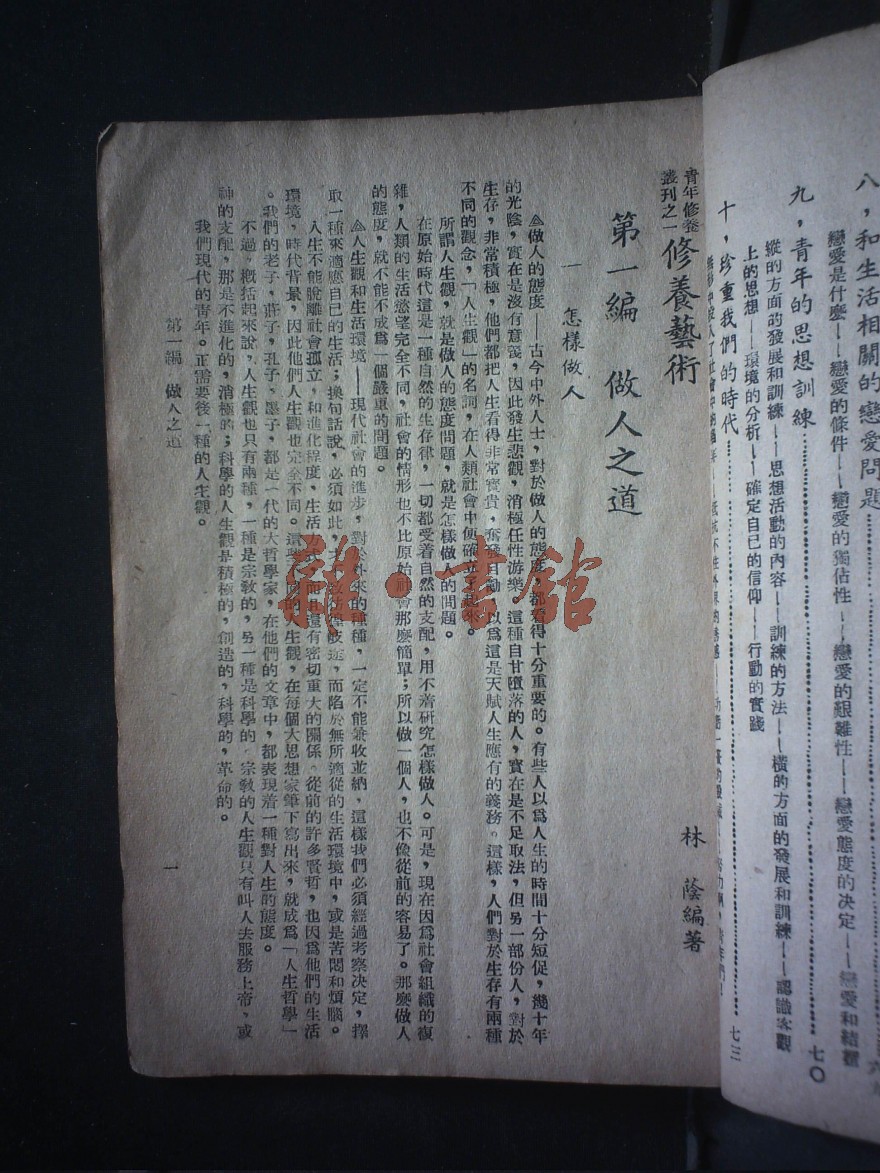 八，和生活相關的戀愛問題
戀愛是什麼——戀愛的條件——戀愛的獨佔性——戀愛的艱難性——戀愛態度的決定——戀愛和結婚
九，青年的思想訓練 七〇
縱的方面的發展和訓練——思想活動的內容——訓練的方法——橫的方面的發展和訓練——認識客觀
上的思想——環境的分析——確定自己的信仰——行動的實踐
十，珍重我們的時代 七三
青年修養
叢刊之一
修養藝術
林蔭編著
第一編 做人之道
一 怎樣做人
△做人的態度——古今中外人士，對於做人的態度，都看得十分重要的。有些人以爲人生的時間十分短促，幾十年
的光陰，實在是沒有意義，因此發生悲觀，消極任性游樂。這種自甘墮落的人，實在是不足取法，但另一部份人，對於
生存，非常積極，他們都把人生看得非常寳貴，奮發自勵，以爲這是天賦人生應有的義務。這樣，人們對於生存有兩種
不同的觀念，「人生觀」的名詞，在人類社會中便確立了起來。
所謂人生觀，就是做人的態度問題，就是怎樣做人的問題。
在原始時代這是一種自然的生存律，一切都受着自然的支配，用不着研究怎樣做人。可是，現在因爲社會組織的復
雜，人類的生活慾望完全不同，社會的情形也不比原始社會那麼簡單；所以做一個人，也不像從前的容易了。那麼做人
的態度，就不能不成爲一個嚴重的問題。
△人生觀和生活環境——現代社會的進步，對於外來的種種，一定不能兼收並納，這樣我們必須經過考察決定，擇
取一種來適應自己的生活；換句話說，必須如此，才 而陷於無所適從的生活環境中，或是苦悶和煩腦。
人生不能脫離社會孤立，和進化程度，生活方式，而且還有密切重大的關係。從前的許多賢哲，也因爲他們的生活
環境，時代背景，因此他們人生觀也完全不同。這 人生觀，在每個大思想家筆下寫出來，就成爲「人生哲學」
。我們的老子，莊子，孔子，墨子，都是一代的大哲學家，在他們的文章中，都表現着一種對人生的態度。
不過，概括起來說，人生觀也只有兩種，一種是宗教的，另一種是科學的。宗教的人生觀只有叫人去服務上帝，或
神的支配，那是不進化的，消極的；科學的人生觀是積極的，創造的，科學的，革命的。
我們現代的青年。正需要後一種的人生觀。
第一編 做人之道
一
雜·書館